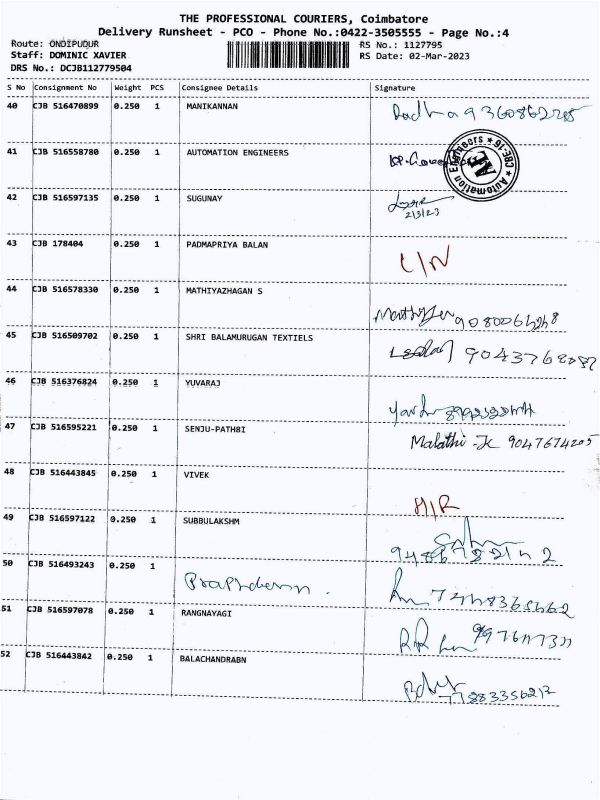 THE PROFESSIONAL COURIERS, Coimbatore
Delivery Runsheet - PCO - Phone No.:0422-3505555 - Page No.:4
Route: ONDIPUDUR RS No.: 1127795
Staff: DOMINIC XAVIER RS Date: 02-Mar-2023
DRS No.: DCJB112779504
S No Consignment No Weight PCS Consignee Details Signature
40 CJB 516470899 0.250 1 MANIKANNAN
41 CJB 516558780 0.250 1 AUTOMATION ENGINEERS
Automation Engineers * CBE-16 * AE
42 CJB 516597135 0.250 1 SUGUNAY
2/3/23
43 CJB 178404 0.250 1 PADMAPRIYA BALAN
44 CJB 516578330 0.250 1 MATHIYAZHAGAN S
45 CJB 516509702 0.250 1 SHRI BALAMURUGAN TEXTIELS
46 CJB 516376824 0.250 1 YUVARAJ
47 CJB 516595221 0.250 1 SENJU-PATH8I
Malathi -K 9047674205
48 CJB 516443845 0.250 1 VIVEK
H/R
49 CJB 516597122 0.250 1 SUBBULAKSHM
50 CJB 516493243 0.250 1
51 CJB 516597078 0.250 1 RANGNAYAGI
52 CJB 516443842 0.250 1 BALACHANDRABN